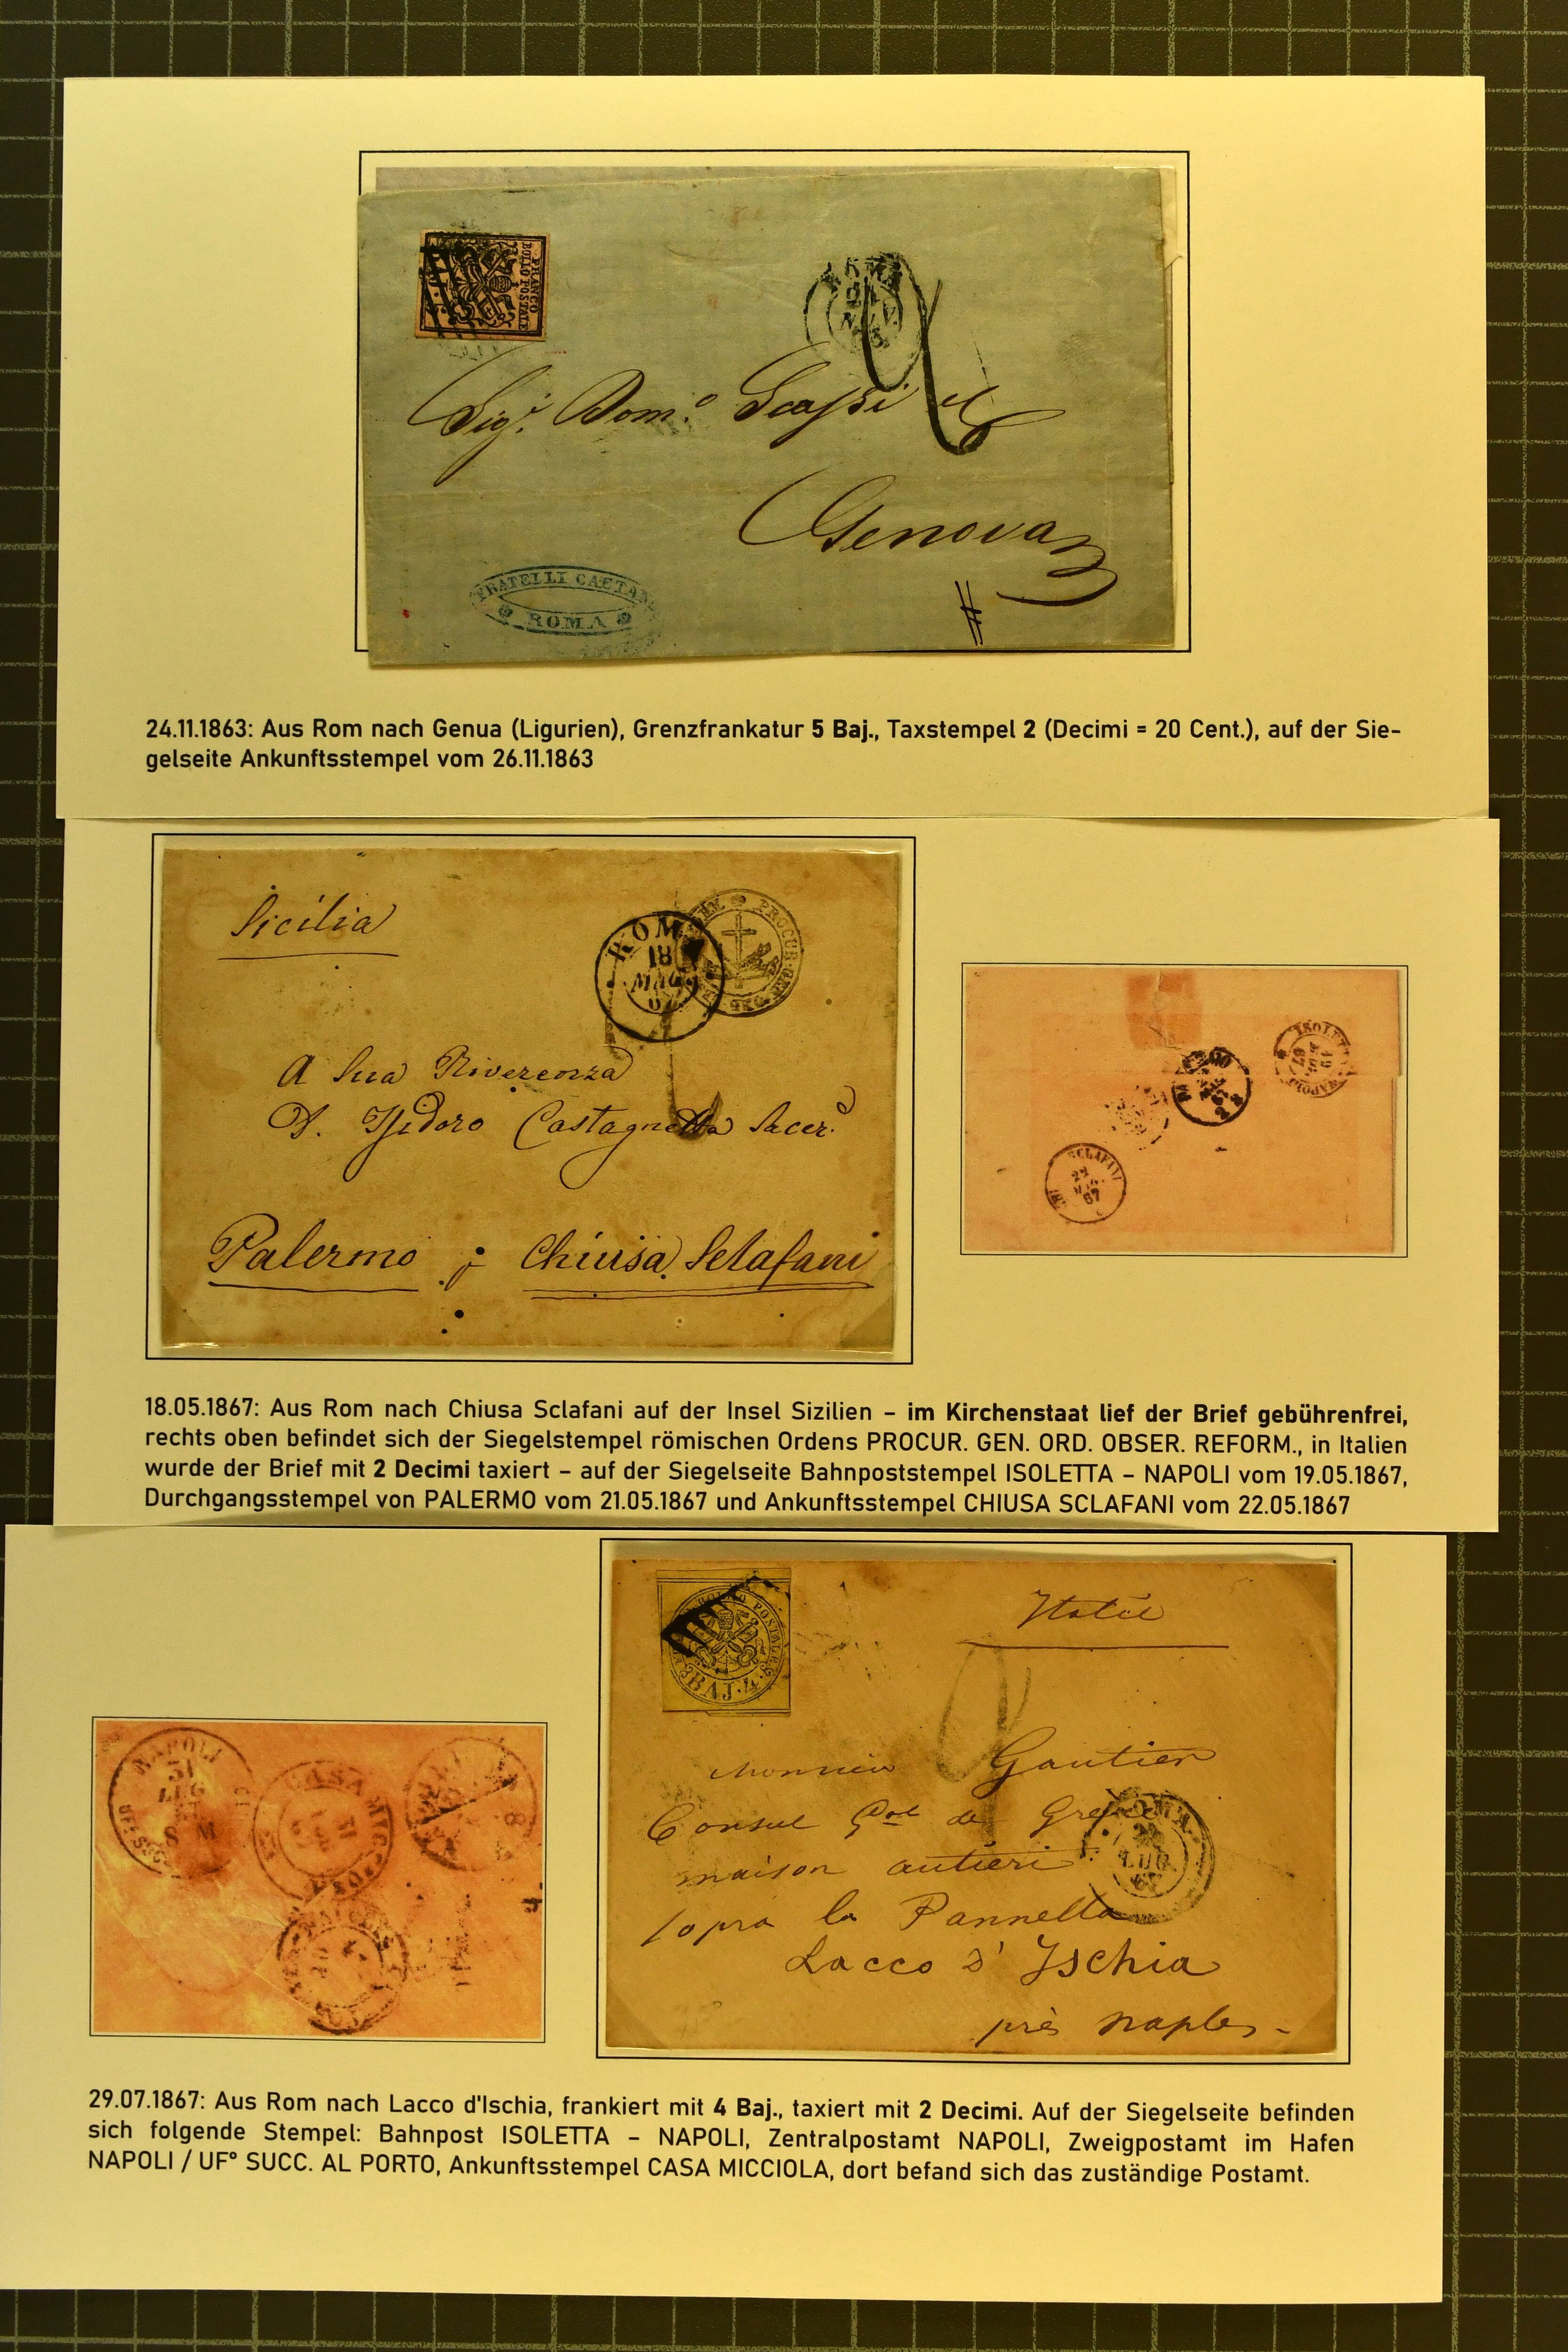 FRANCO
BOLLO POSTALE
ROMA
24
NOV.
63
Sig.r Dom.o Scassi e C
Genova
FRATELLI CAETANI
ROMA
24.11.1863: Aus Rom nach Genua (Ligurien), Grenzfrankatur 5 Baj., Taxstempel 2 (Decimi = 20 Cent.), auf der Sie-
gelseite Ankunftsstempel vom 26.11.1863
Sicilia
ROMA
18
MAG
67
PROCUR. GEN. ORD.
A Sua Riverenza
D. Isidoro Castagnetta Sacer.
Palermo p Chiusa Sclafani
ISOLETTA
NAPOLI
19
67
PALERMO
SCLAFANI
22
MAG.
67
18.05.1867: Aus Rom nach Chiusa Sclafani auf der Insel Sizilien – im Kirchenstaat lief der Brief gebührenfrei,
rechts oben befindet sich der Siegelstempel römischen Ordens PROCUR. GEN. ORD. OBSER. REFORM., in Italien
wurde der Brief mit 2 Decimi taxiert – auf der Siegelseite Bahnpoststempel ISOLETTA – NAPOLI vom 19.05.1867,
Durchgangsstempel von PALERMO vom 21.05.1867 und Ankunftsstempel CHIUSA SCLAFANI vom 22.05.1867
BOLLO POSTALE
BAJ. 4
Italie
2
Monsieur Gautier
Consul Gal de
maison autieri
sopra la Pannella
Lacco d'Ischia
près Naples
ROMA
LUG
67
NAPOLI
31
LUG
8 M
CASAMICCIOLA
29.07.1867: Aus Rom nach Lacco d'Ischia, frankiert mit 4 Baj., taxiert mit 2 Decimi. Auf der Siegelseite befinden
sich folgende Stempel: Bahnpost ISOLETTA – NAPOLI, Zentralpostamt NAPOLI, Zweigpostamt im Hafen
NAPOLI / UF° SUCC. AL PORTO, Ankunftsstempel CASA MICCIOLA, dort befand sich das zuständige Postamt.